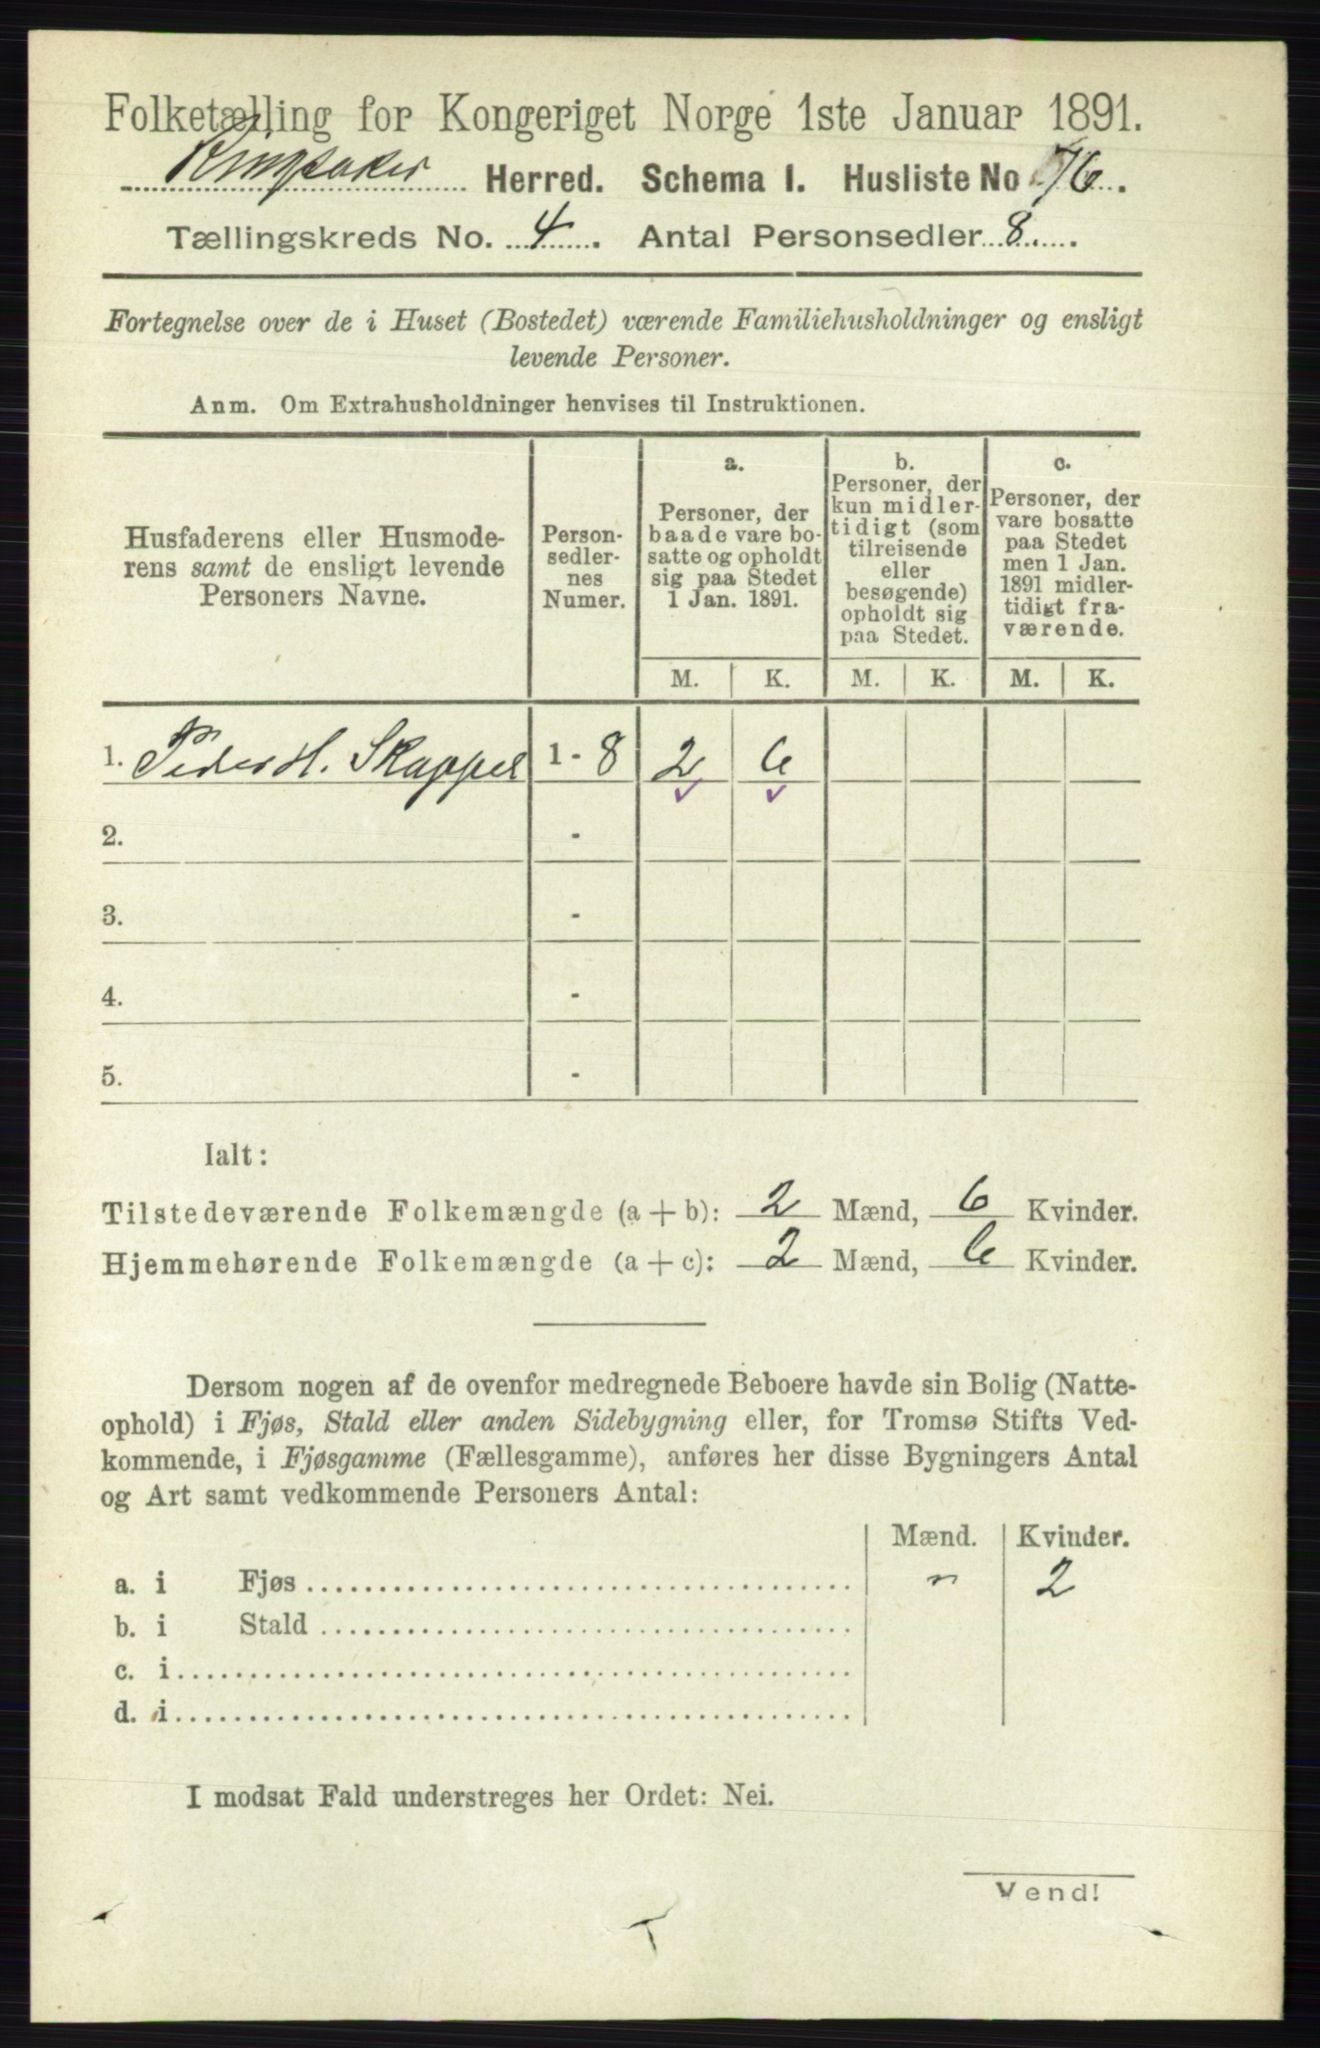 Folketælling for Kongeriget Norge 1ste Januar 1891.
Ringsaker Herred. Schema I. Husliste No 76.
Tællingskreds No. 4. Antal Personsedler 8.
Fortegnelse over de i Huset (Bostedet) værende Familiehusholdninger og ensligt
levende Personer.
Anm. Om Extrahusholdninger henvises til Instruktionen.
Husfaderens eller Husmode-
rens samt de ensligt levende
Personers Navne.
Person-
sedler-
nes
Numer.
a.
Personer, der
baade vare bo-
satte og opholdt
sig paa Stedet
1 Jan. 1891.
b.
Personer, der
kun midler-
tidigt (som
tilreisende
eller
besøgende)
opholdt sig
paa Stedet.
c.
Personer, der
vare bosatte
paa Stedet
men 1 Jan.
1891 midler-
tidigt fra-
værende.
M. K. M. K. M. K.
1. Peder H. Skappel 1 - 8 2 6
2. -
3. -
4. -
5. -
Ialt:
Tilstedeværende Folkemængde (a + b): 2 Mænd, 6 Kvinder.
Hjemmehørende Folkemængde (a + c): 2 Mænd, 6 Kvinder.
Dersom nogen af de ovenfor medregnede Beboere havde sin Bolig (Natte-
ophold) i Fjøs, Stald eller anden Sidebygning eller, for Tromsø Stifts Ved-
kommende, i Fjøsgamme (Fællesgamme), anføres her disse Bygningers Antal
og Art samt vedkommende Personers Antal:
Mænd. Kvinder.
a. i Fjøs " 2
b. i Stald
c. i
d. i
I modsat Fald understreges her Ordet: Nei.
Vend!